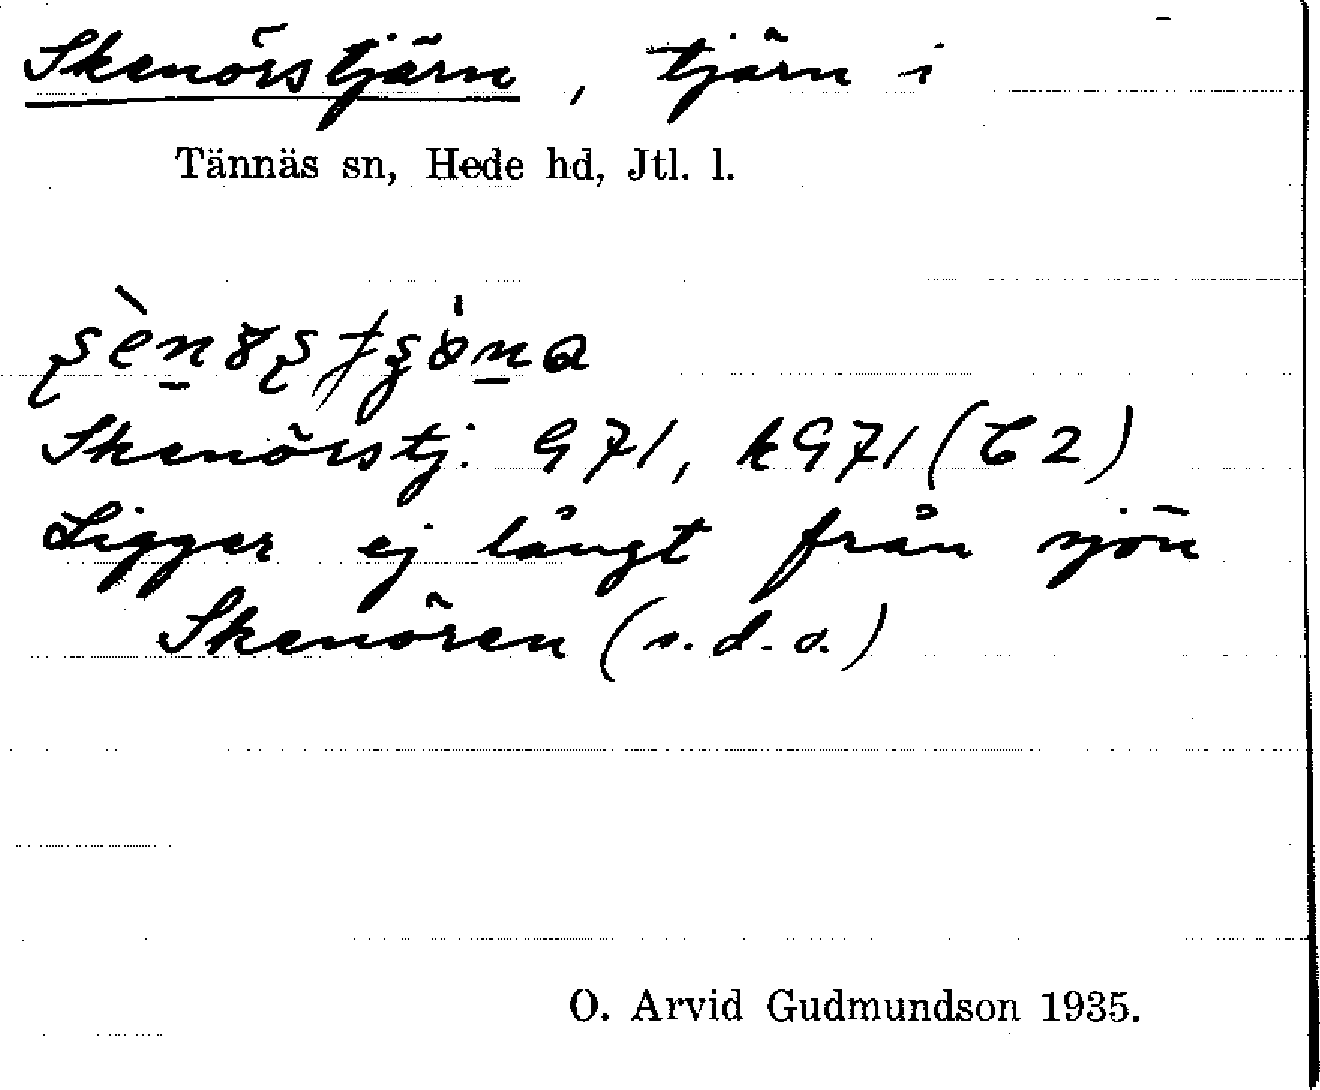 Skenörstjärn, tjärn i
Tännäs sn, Hede hd, Jtl. l.
Skenörstj. G71, kG71 (C2)
Ligger ej långt från sjön
Skenören (s.d.o.)
O. Arvid Gudmundson 1935.